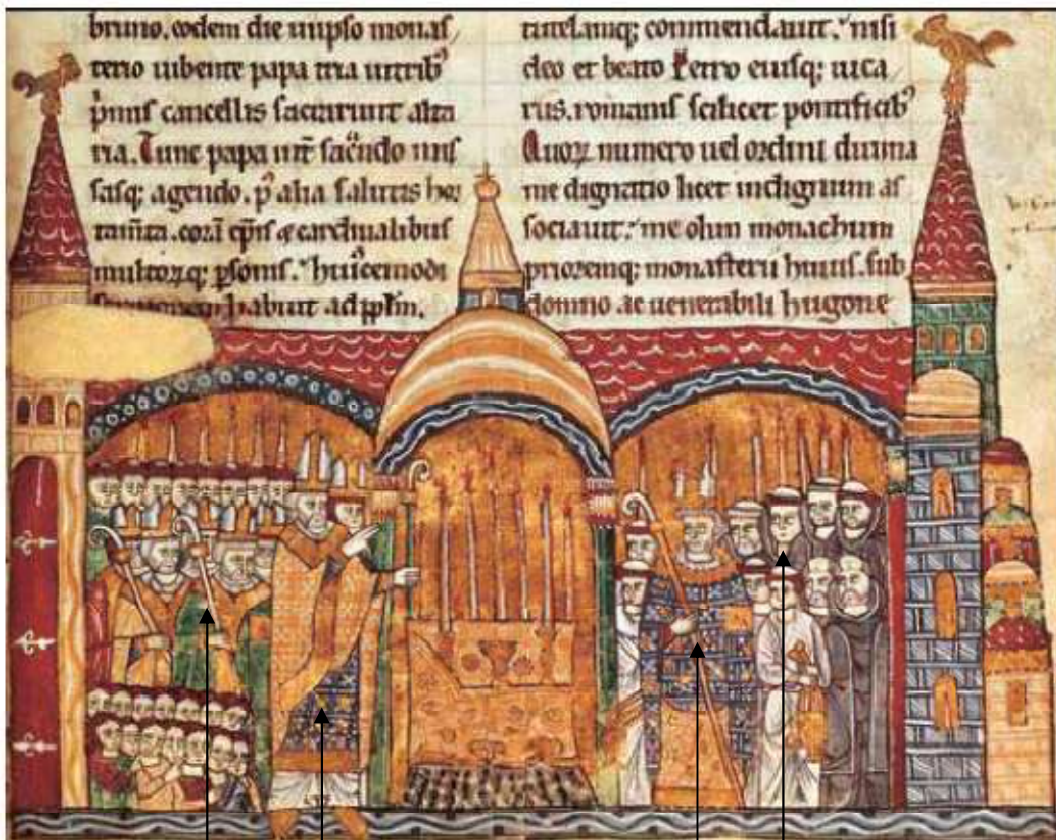 bruno. eodem die in ipso monas/
terio iubente papa tria in tribꝰ
pͥmis cancellis sacrarunt alta
ria. Tunc papa int̄ sac̄ndo mis
sasq; agendo. p᷒ alia salutis hor
tam̄ta. corā ep̄is & cardinalibus
multorꝝq; ꝑsonis. huiꝰcemodi
sermonem habuit ad pp̄lm.
tutelamq; commendauit. nisi
deo et beato Petro eiusq; uica
riis. romanis scilicet pontificibꝰ
Quorꝝ numero uel ordini diuina
me dignatio licet indignum as
sociauit. me olim monachum
prioremq; monasterii huius. sub
domno ac uenerabili hugone